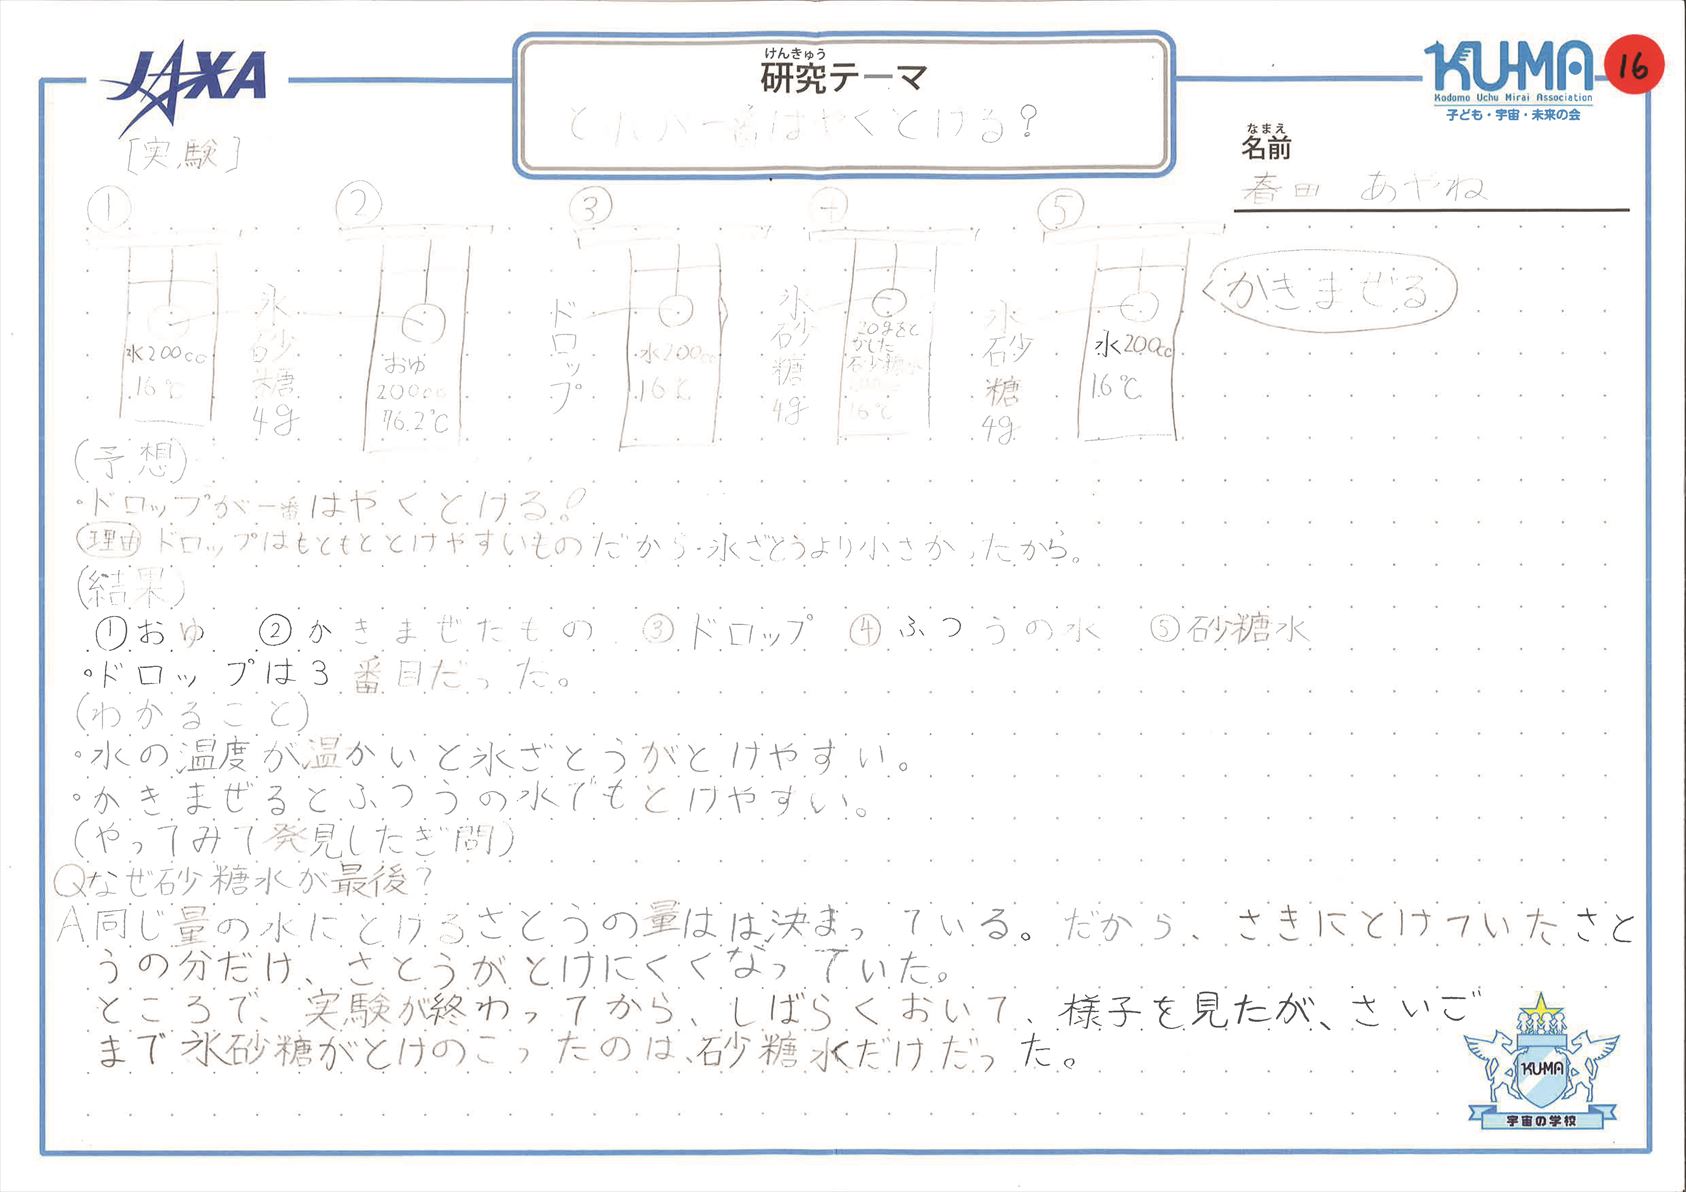 JAXA
けんきゅう
研究テーマ
どれが一番はやくとける?
KU-MA
Kodomo Uchu Mirai Association
子ども・宇宙・未来の会
16
なまえ
名前
春田 あやね
[実験]
① ② ③ ④ ⑤
水200cc
16℃
氷砂糖4g
おゆ
200cc
76.2℃
ドロップ
水200cc
16℃
氷砂糖4g
20gをと
かした
砂糖水
16℃
氷砂糖4g
水200cc
16℃
かきまぜる
(予想)
・ドロップが一番はやくとける!
理由 ドロップはもともととけやすいものだから・氷ざとうより小さかったから。
(結果)
①おゆ ②かきまぜたもの ③ドロップ ④ふつうの水 ⑤砂糖水
・ドロップは3番目だった。
(わかること)
・水の温度が温かいと氷ざとうがとけやすい。
・かきまぜるとふつうの水でもとけやすい。
(やってみて発見したぎ問)
Qなぜ砂糖水が最後?
A同じ量の水にとけるさとうの量はは決まっている。だから、さきにとけていたさと
うの分だけ、さとうがとけにくくなっていた。
ところで、実験が終わってから、しばらくおいて、様子を見たが、さいご
まで氷砂糖がとけのこったのは、砂糖水だけだった。
KU-MA
宇宙の学校